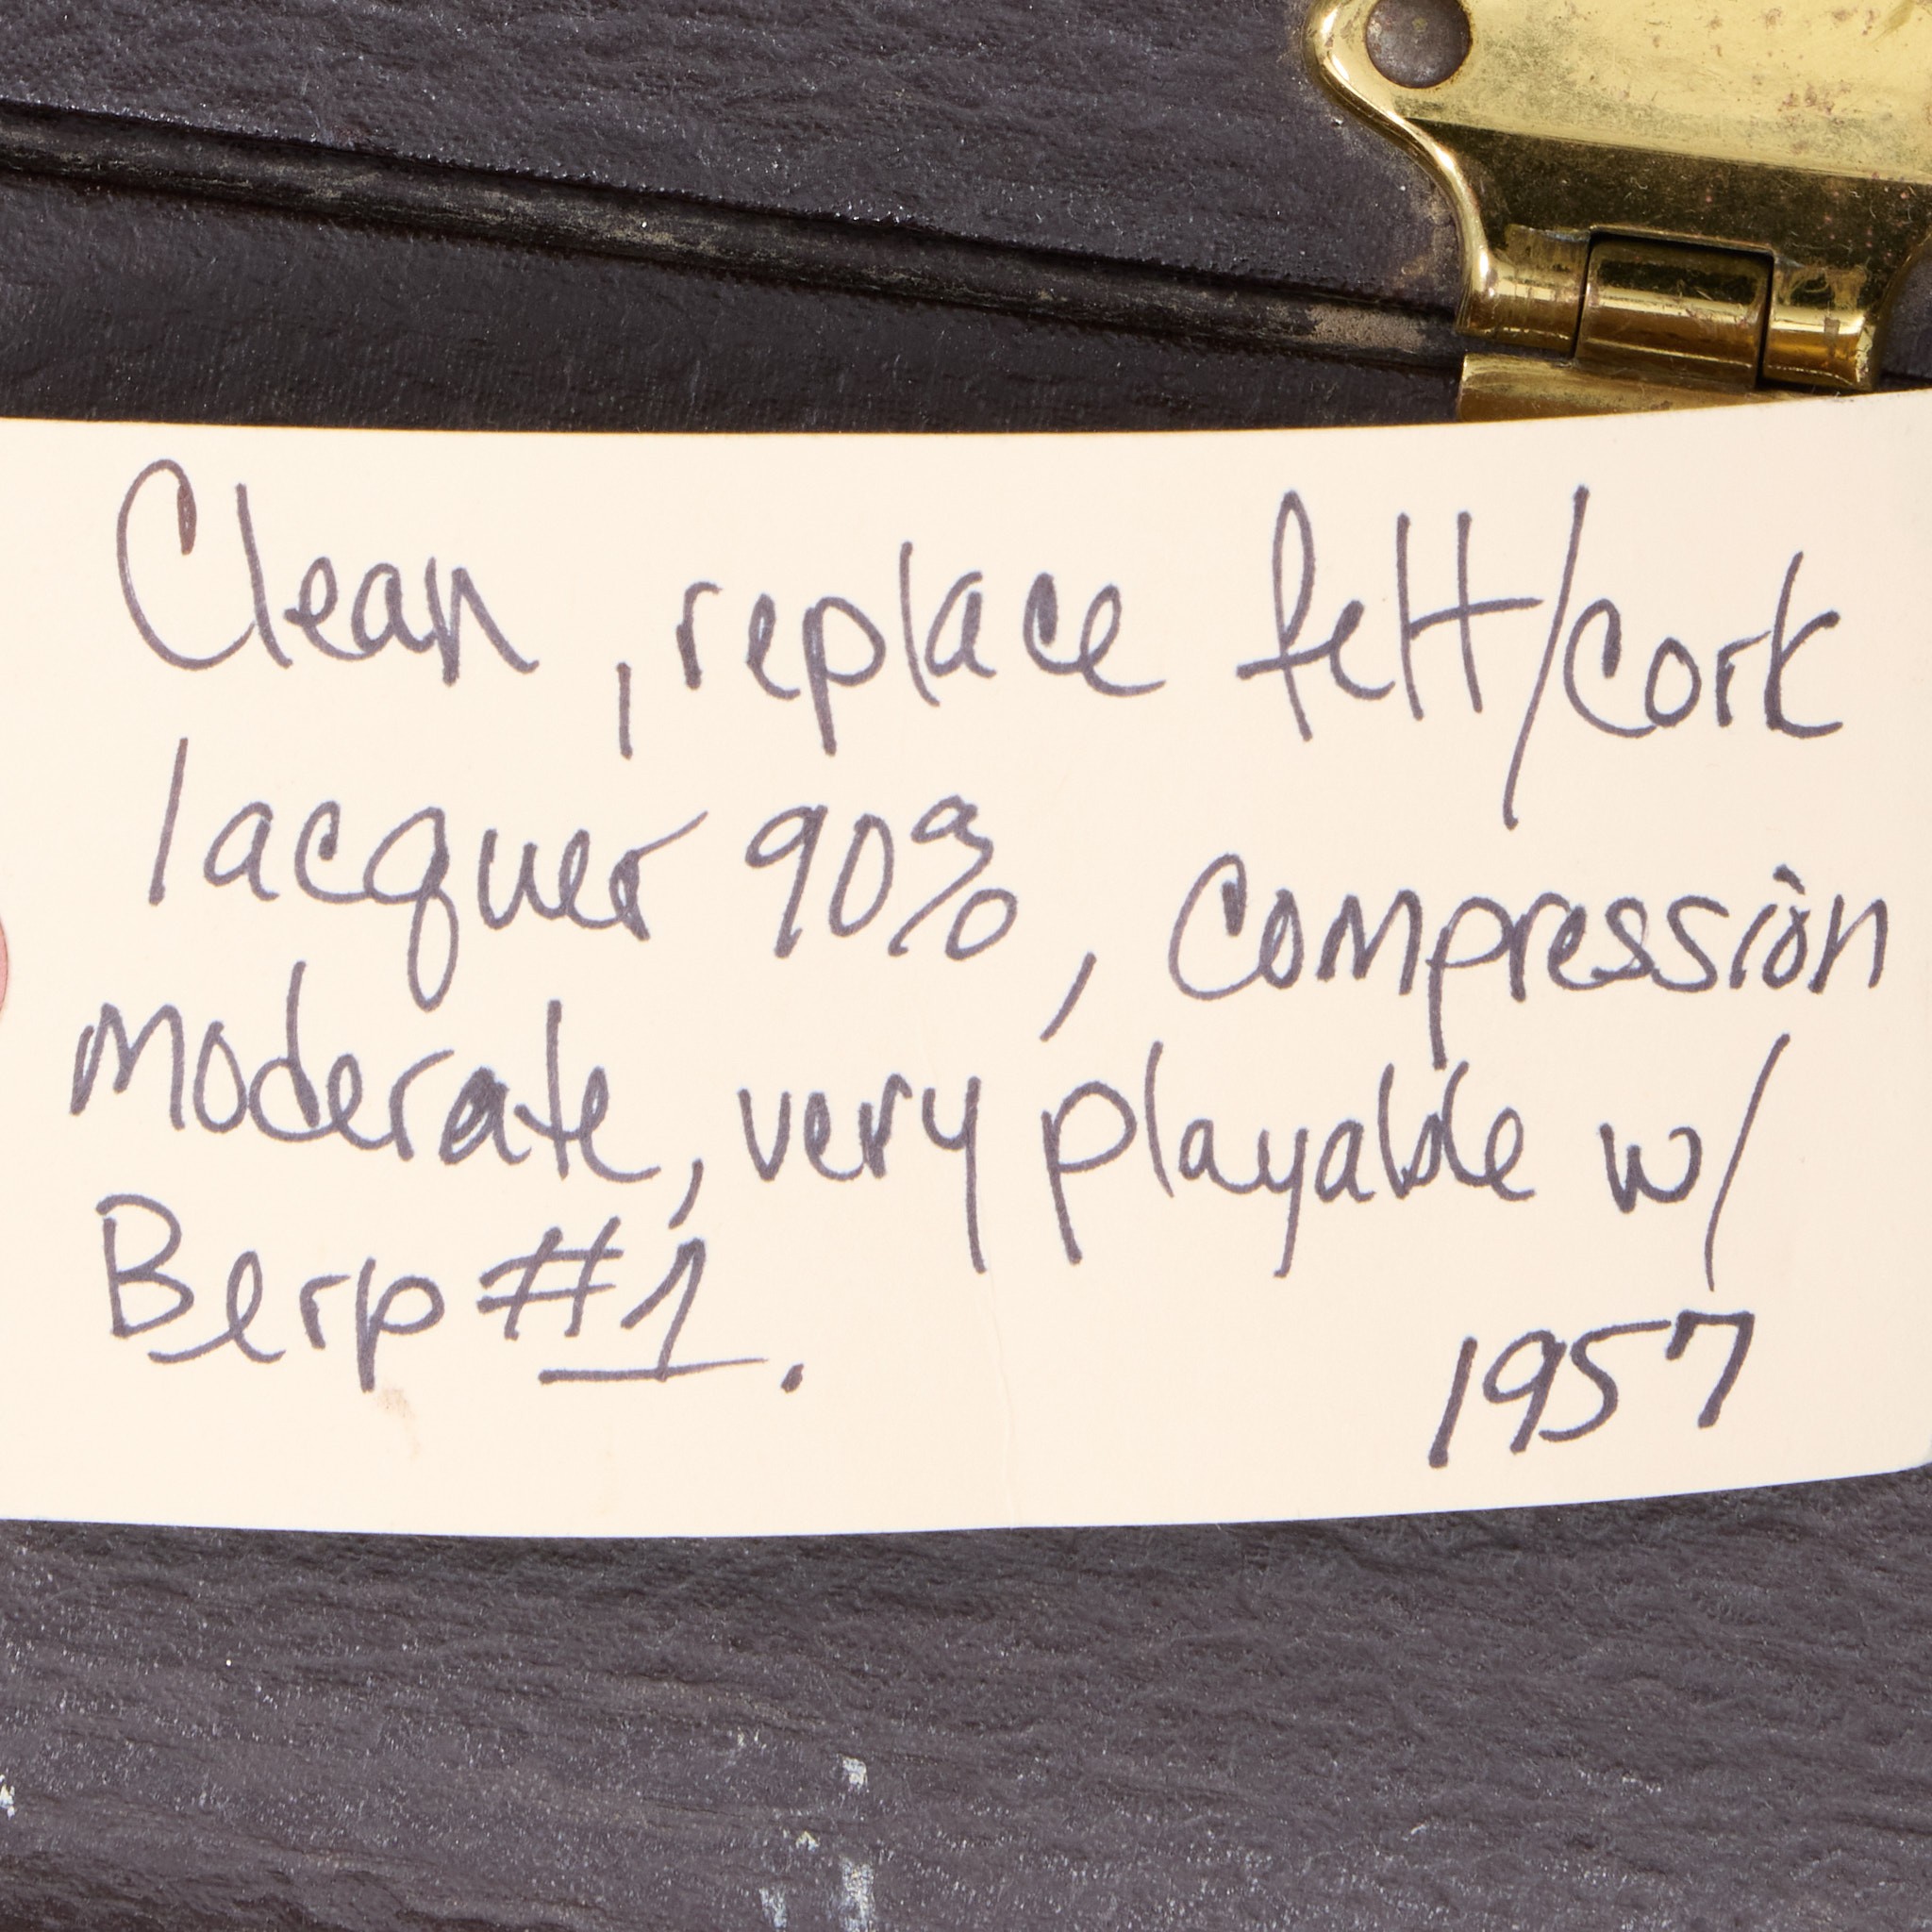 Clean, replace felt/cork
lacquer 90%, Compression
moderate, very playable w/
Berp #1.
1957